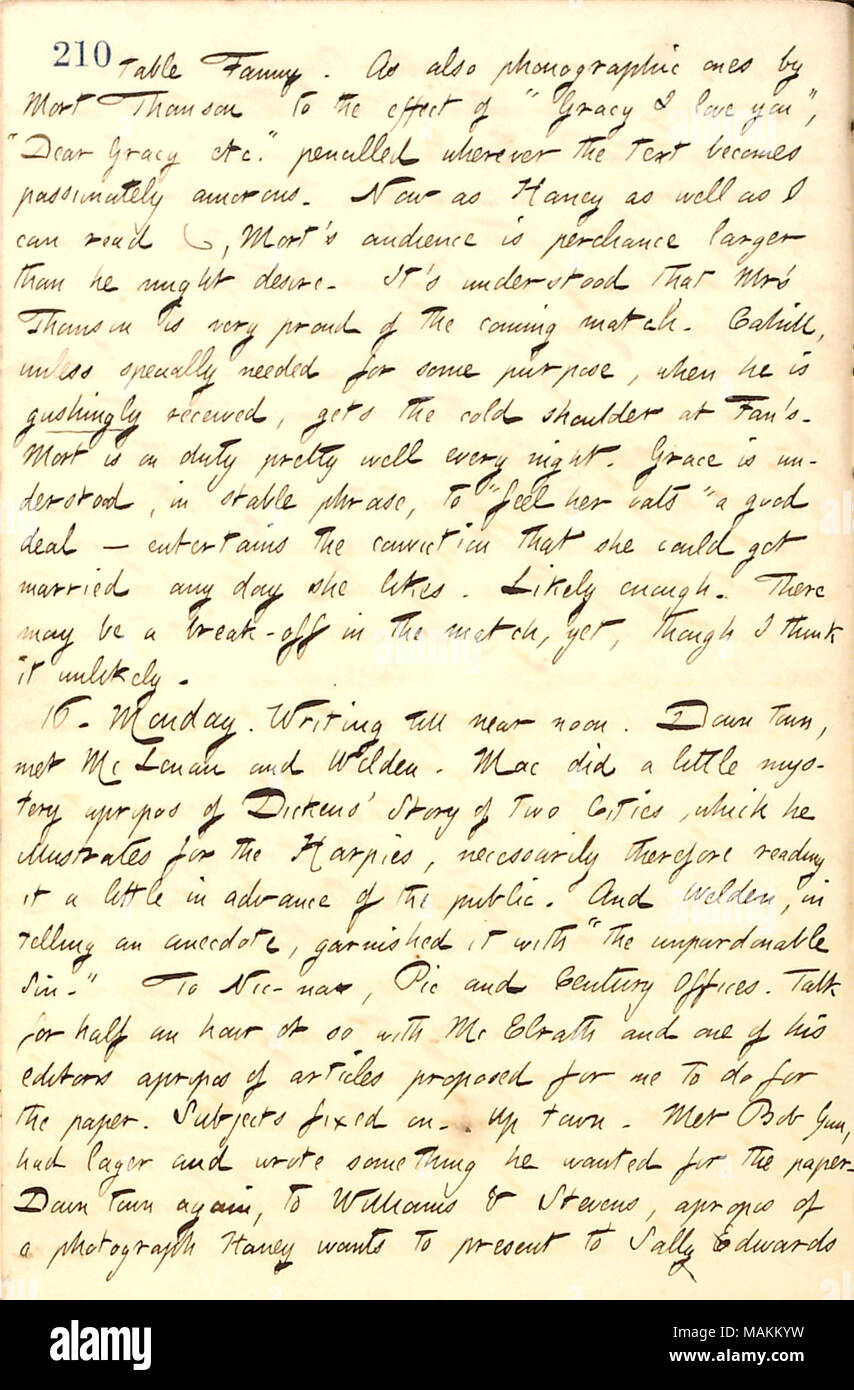 210
table Fanny. As also phonographic ones by
Mort Thomson to the effect of "Gracy I love you",
"Dear Gracy etc." pencilled wherever the text becomes
passionately amorous. Now as Haney as well as I
can read , Mort's audience is perchance larger
than he might desire. It's understood that Mrs
Thomson is very proud of the coming match. Cahill,
unless specially needed for some purpose, when he is
gushingly received, gets the cold shoulder at Fan's.
Mort is on duty pretty well every night. Grace is un-
derstood, in stable phrase, to "feel her oats" a good
deal — entertains the conviction that she could get
married any day she likes. Likely enough. There
may be a break-off in the match, yet, though I think
it unlikely.
16. Monday. Writing till near noon. Down town,
met Mc Lenan and Welden. Mac did a little mys-
tery apropos of Dickens' Story of Two Cities, which he
illustrates for the Harpies, necessarily therefore reading
it a little in advance of the public. And Welden, in
telling an anecdote, garnished it with "the unpardonable
Sin." To Nic-nax, Pic and Century Offices. Talk
for half an hour or so with Mc Elrath and one of his
editors apropos of articles proposed for me to do for
the paper. Subjects fixed on. Up town. Met Bob Gun,
had lager and wrote something he wanted for the paper.
Down town again, to Williams & Stevens, apropos of
a photograph Haney wants to present to Sally Edwards
alamy
Image ID: MAKKYW
www.alamy.com